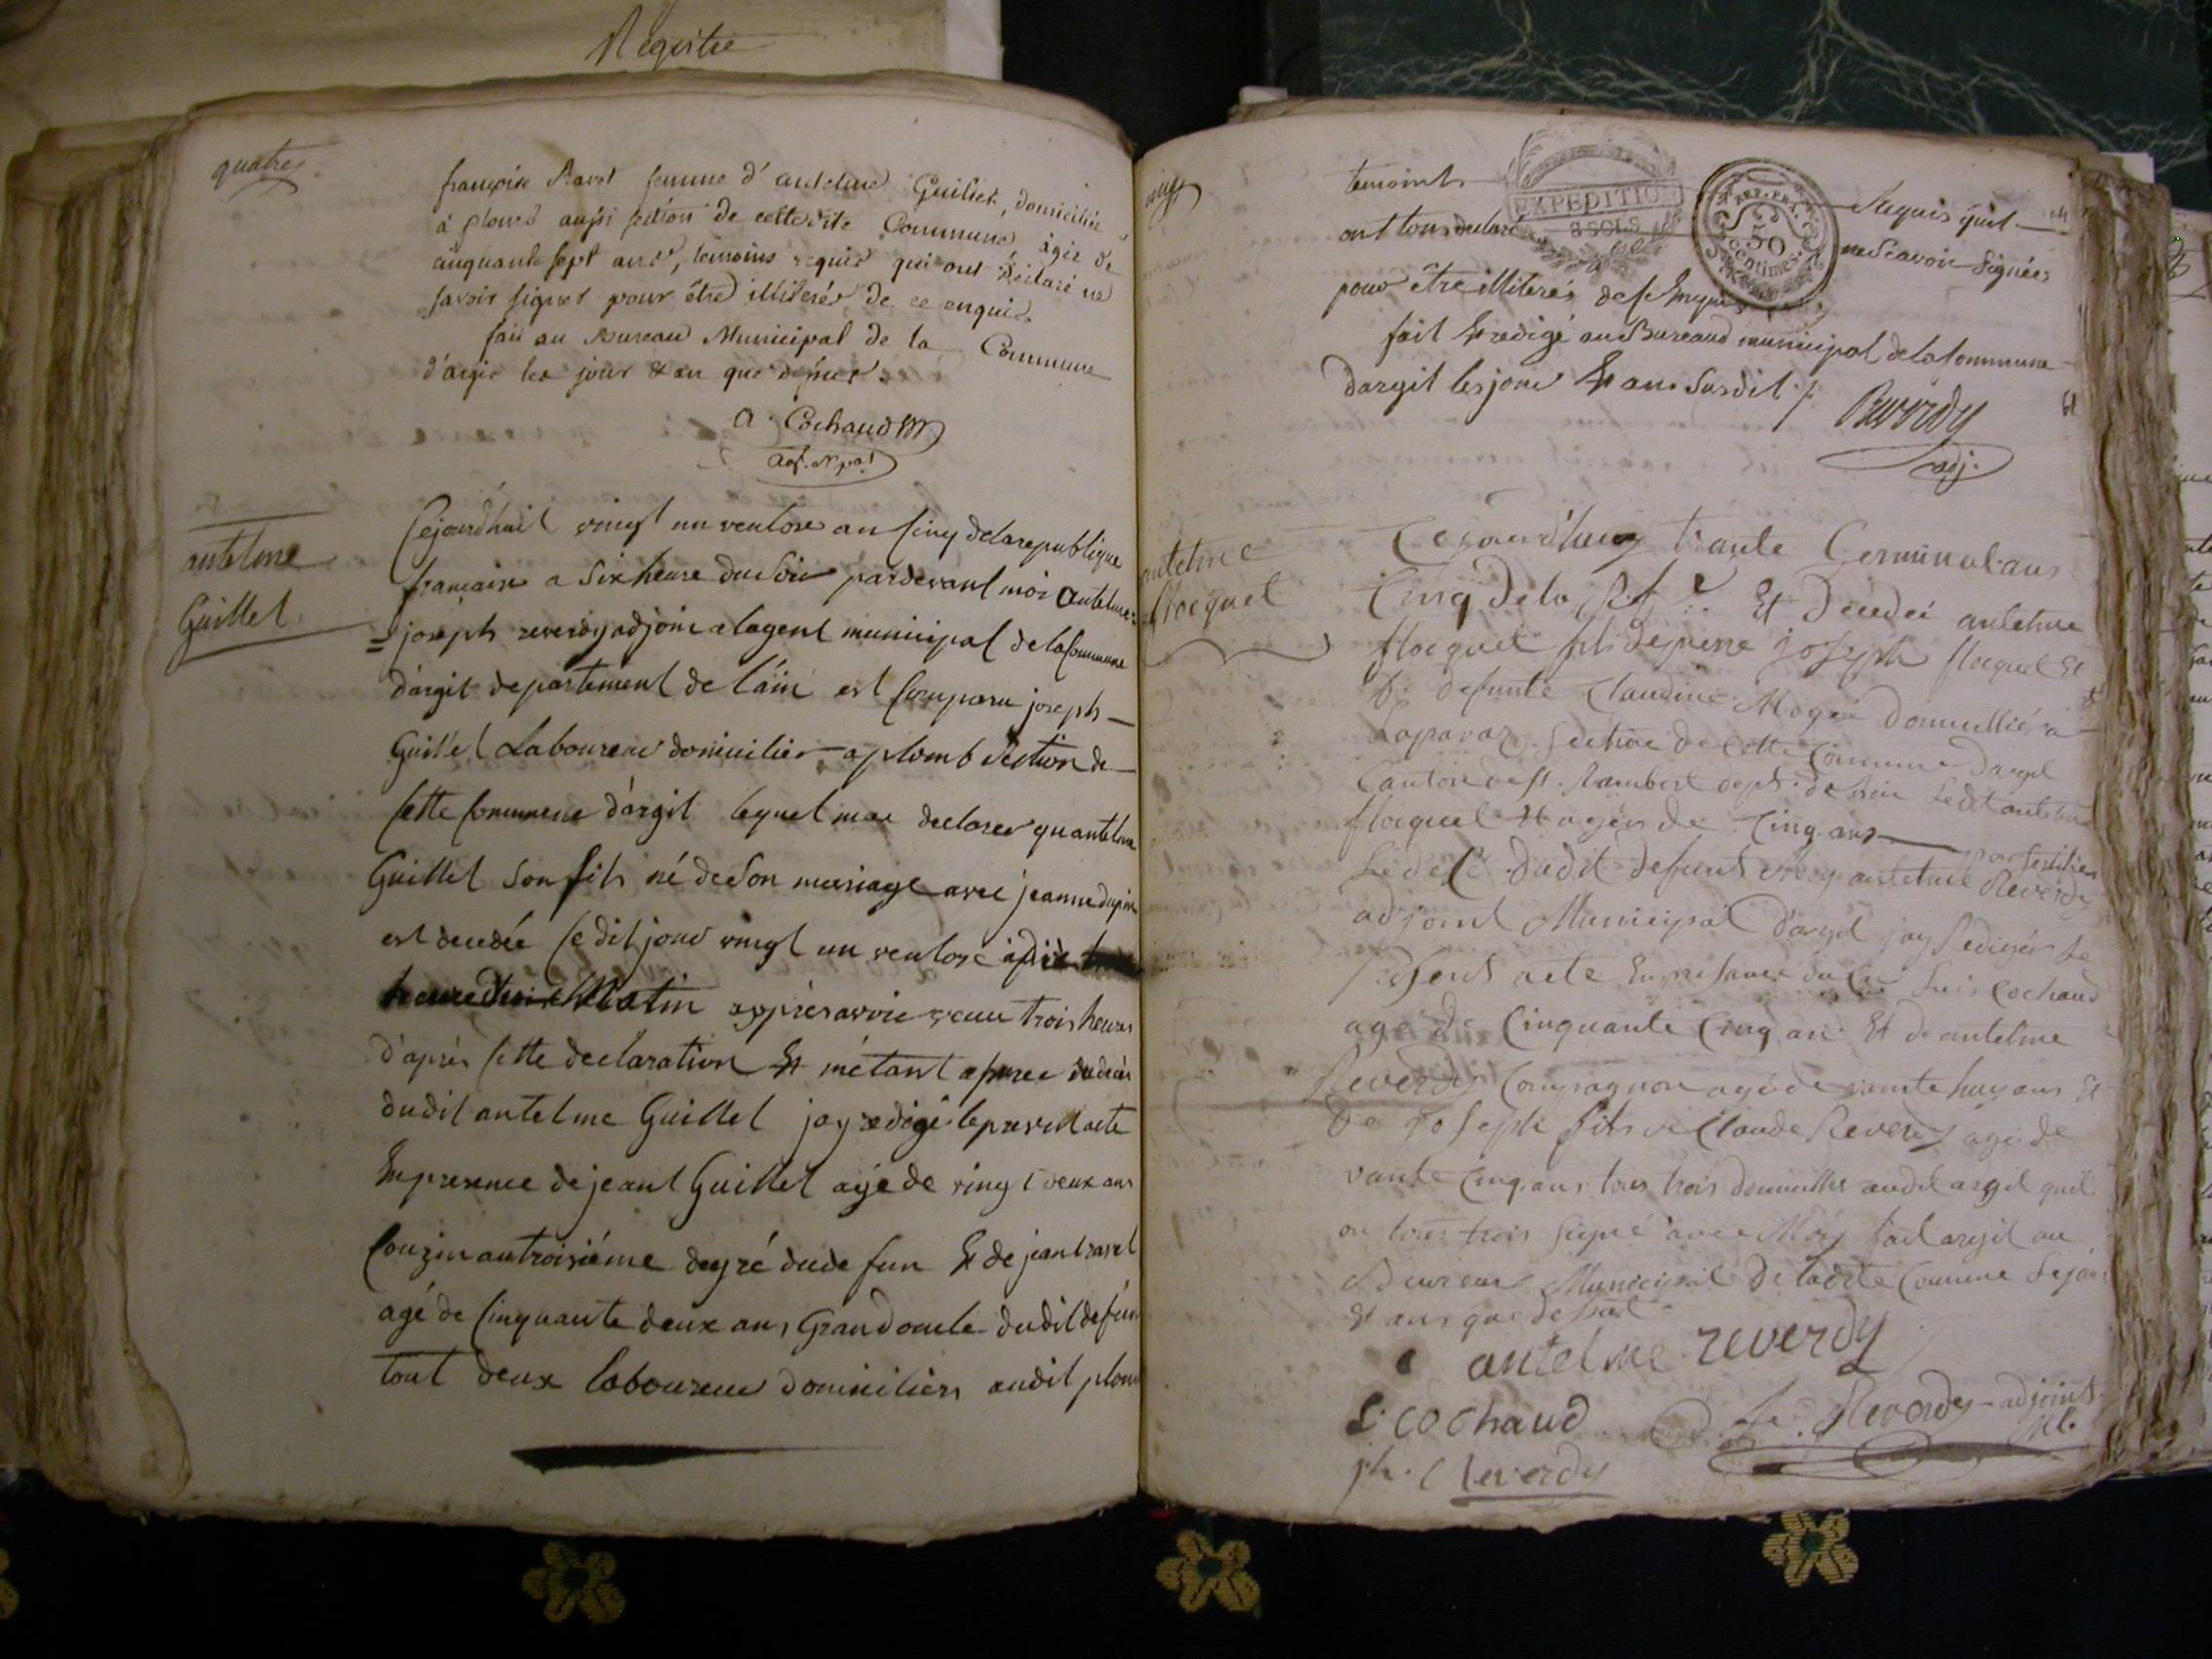 Registre
quatre
françoise Ravet femme d'antelme Guillet, domiciliée
à plomb aussi section de cette dite Commune agée de
cinquante sept ans, temoins requis qui ont déclaré ne
savoir signer pour être illiterés de ce enquis.
fait au Bureau Municipal de la Commune
d'argis les jour & an que dessus.
A. Cochaud
agt. Mpal
antelme
Guillet
Cejourdhuit vingt un ventose an cinq de la republique
francaise a six heure du soir pardevant moi antelme
joseph reverdy adjoint a lagent municipal de la Commune
d'argit departement de l'ain est Comparu joseph
Guillet Laboureur domicilier a plomb section de
cette Commune d'argit lequel mae declarer quantelme
Guillet son fils né de son mariage avec jeanne dupin
est decedée ce dit jour vingt un ventose
Matin apprésavoir vecu trois heures
d'aprés cette declaration Et métant du decés
dudit antelme Guillet jay redigé le present acte
En presence de jeant Guillet agé de vingt deux ans
Couzin au troisiéme degré dude fun Et de jean ravet
agé de Cinquante deux ans Grand oncle dudit defun
tout deux laboureur domiciliers audit plom
cinq
temoint requis quil
ont tous declaré ne scavoir signées
EXPEDITION
8 SOLS
50
Centimes
pour être illiterés de ce Enquis
fait Et redigé au Bureaud municipal de la Commune
dargit les jour Et an susdit
Reverdy
adj.
antelme
flocquet
Cejourdhuy trante Germinal ans
Cinq de la R.f. Et decedée antelme
flocquet fils de pierre joseph flocquet Et
de defunte Claudine domicilliés à
section de cette Commune dargit
Canton de st. Rambert dept. de lain ledit antelme
flocquet Et agér de Cinq ans
pour sertifier
le deсé dudit defunt Moy antelme Reverdy
adjoint Municipal d'argit jay redigér le
present acte En presance du Cen Cochaud
agé de Cinquante Cinq an Et de antelme
Reverdy Compagnon agé de huy ans Et
De joseph fils de Claude Reverdy agé de
Cinq ans tous trois domicilles audit argit quil
on tous trois signé avec Moy fait argit au
Bureau Municipal De ladite Commune le jour
Et ans que dessut
antelme reverdy
L. Cochaud
Reverdy adjoint
ph. C Reverdy